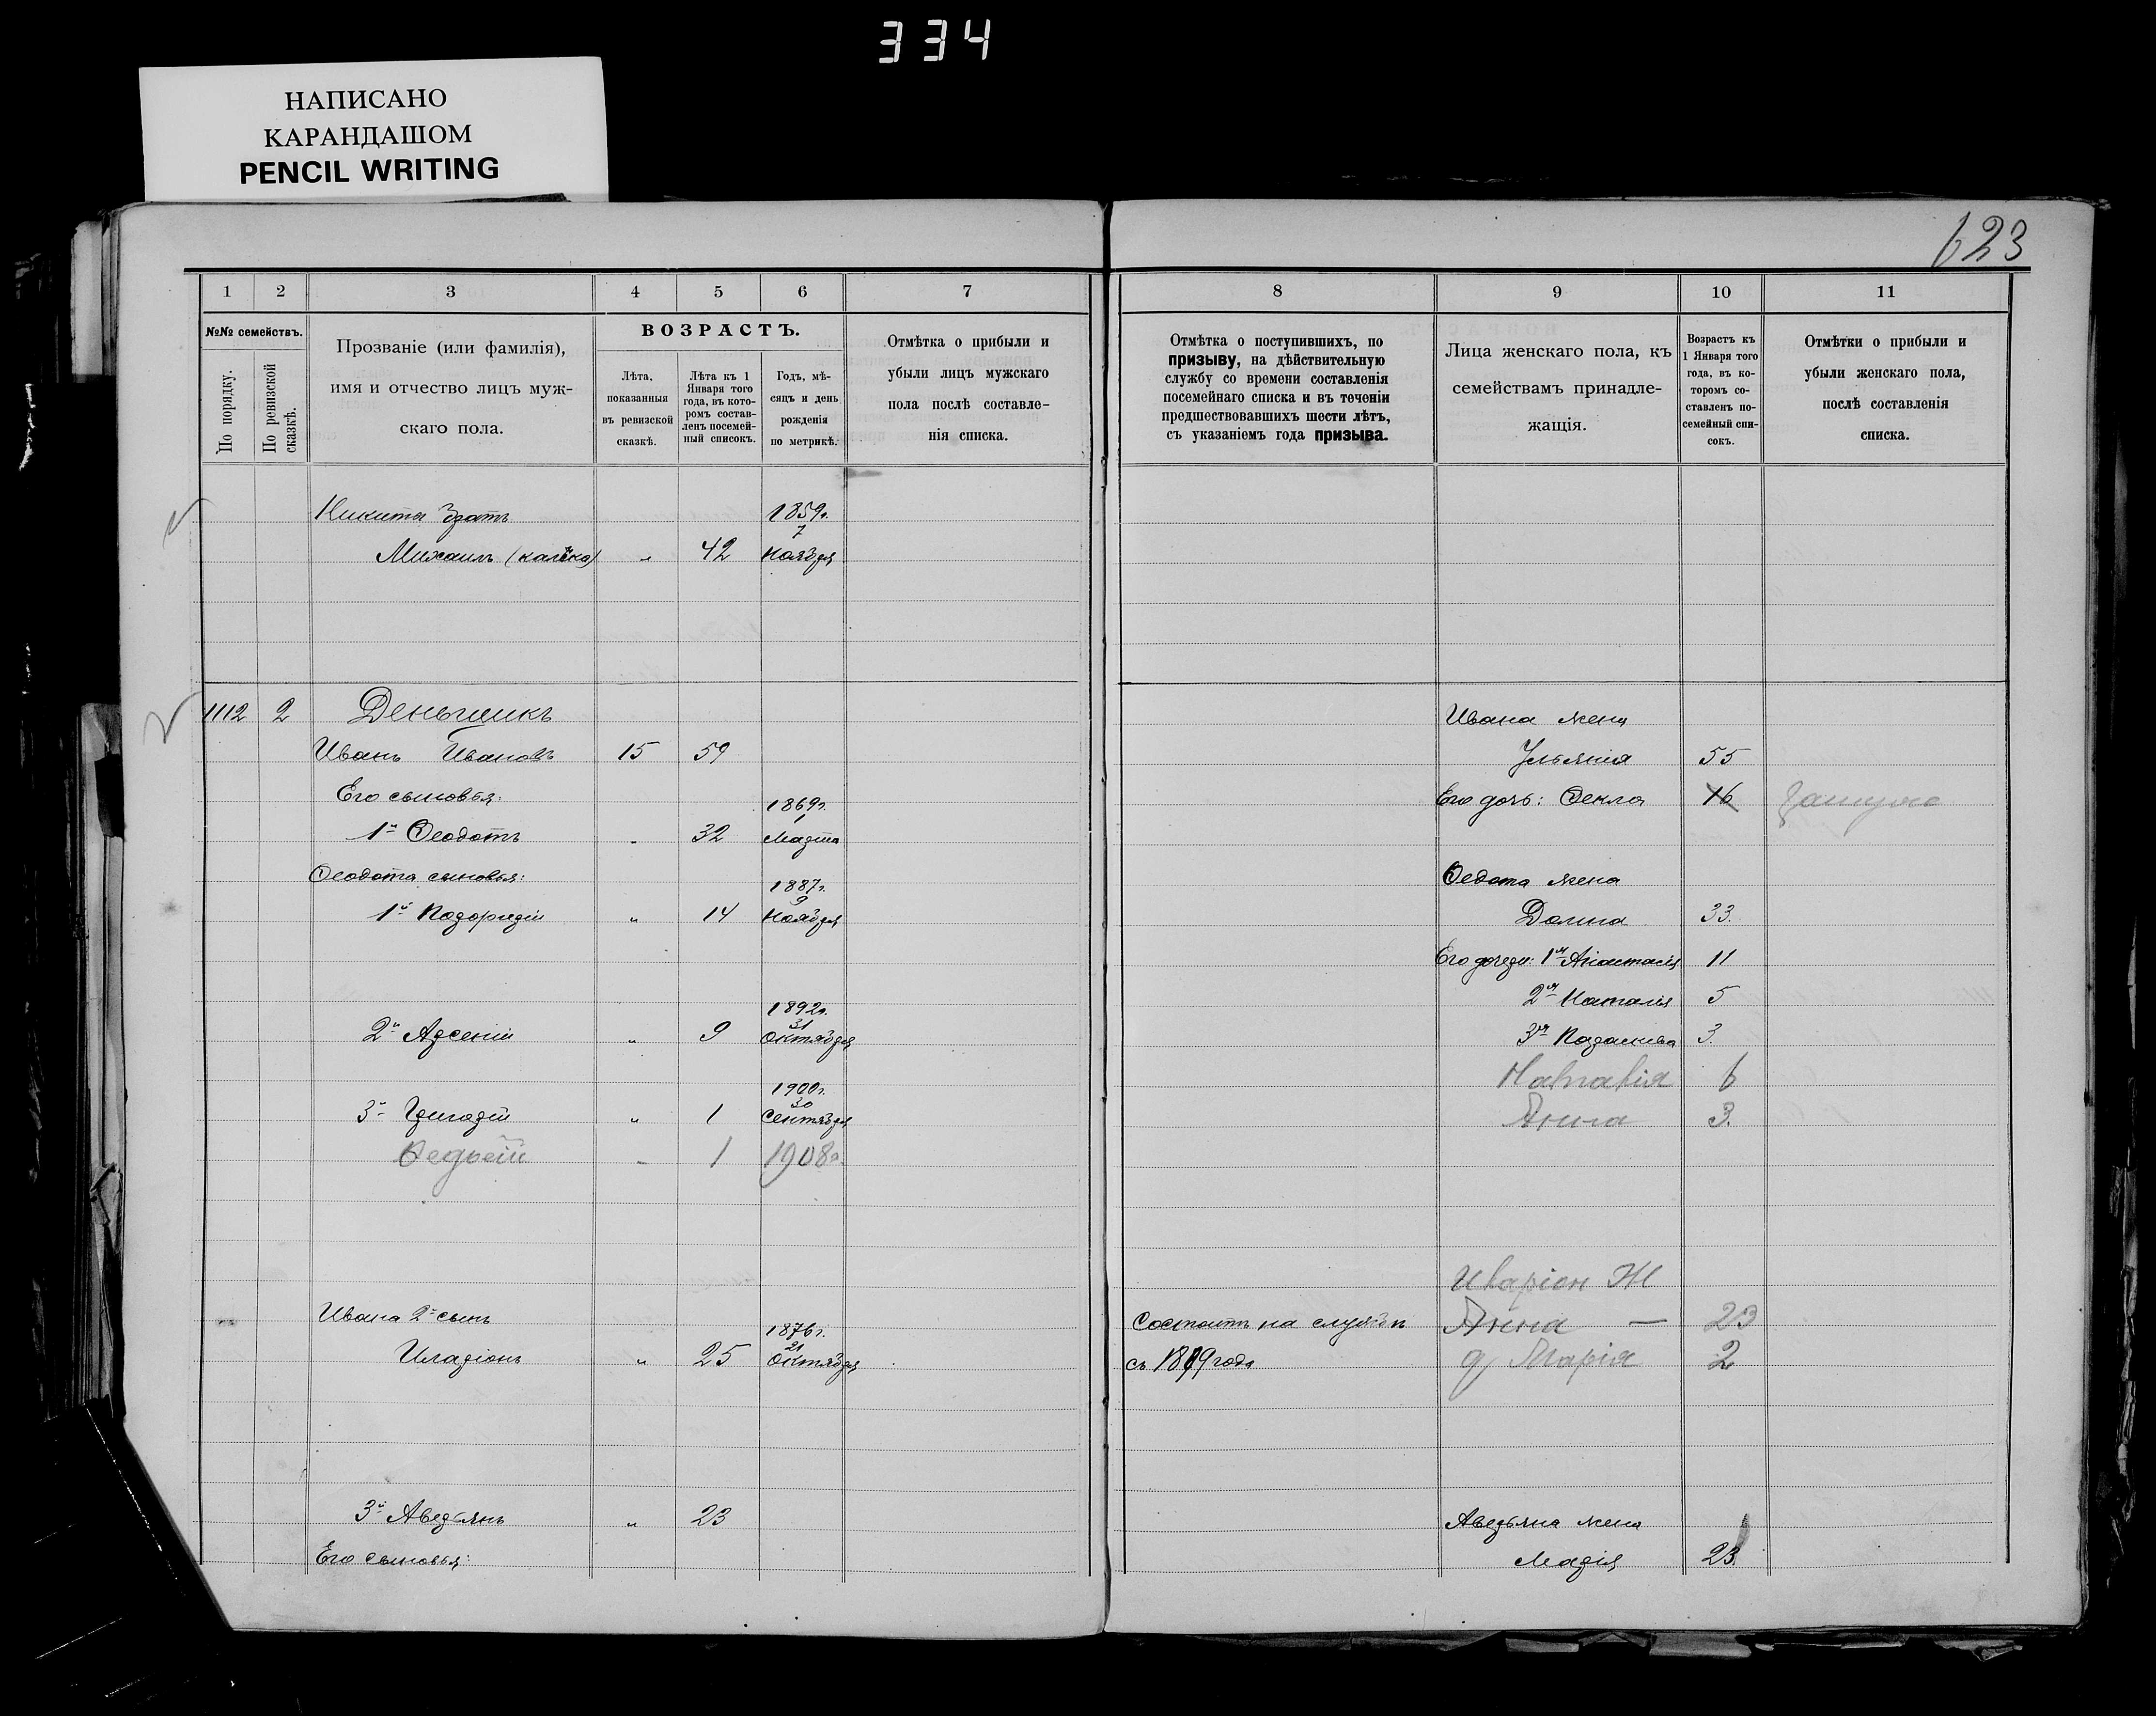 334
НАПИСАНО
КАРАНДАШОМ
PENCIL WRITING
623
1 2 3 4 5 6 7 8 9 10 11
№№ семействъ.
По порядку.
По ревизской сказкѣ.
Прозваніе (или фамилія),
имя и отчество лицъ муж-
скаго пола.
ВОЗРАСТЪ.
Лѣта,
показанныя
въ ревизской
сказкѣ.
Лѣта къ 1
Января того
года, въ кото-
ромъ состав-
ленъ посемей-
ный списокъ.
Годъ, мѣ-
сяцъ и день
рожденія
по метрикѣ.
Отмѣтка о прибыли и
убыли лицъ мужскаго
пола послѣ составле-
нія списка.
Отмѣтка о поступившихъ, по
призыву, на дѣйствительную
службу со времени составленія
посемейнаго списка и въ теченіи
предшествовавшихъ шести лѣтъ,
съ указаніемъ года призыва.
Лица женскаго пола, къ
семействамъ принадле-
жащія.
Возрастъ къ
1 Января того
года, въ ко-
торомъ со-
ставленъ по-
семейный спи-
сокъ.
Отмѣтки о прибыли и
убыли женскаго пола,
послѣ составленія
списка.
Никита братъ 1859г.
7
Михаилъ (калѣка) „ 42 Ноября
1112 2 Деньщикъ Ивана жена
Иванъ Ивановъ 15 59 Ульянія 55
Его сыновья: 1869г. Его дочь: Ѳекла 16 Замужо
1
1й Ѳеодотъ „ 32 Марта
Ѳеодота сыновья: 1887г. Ѳедота жена
9
1й Порфирій „ 14 Ноября Домна 33.
Его дочери: 1я Анастасія 11
1892г. 2я Наталія 5
31
2й Арсеній „ 9 Октября 3я Параскева 3.
1900г. Наталія 6
30
3й Григорій „ 1 Сентября Анна 3.
1 1908г.
Иларіон Ж
Ивана 2й сынъ 1876г. Состоитъ на службѣ Анна — 23
21
Иларіонъ „ 25 Октября съ 1899 года д Марія 2
3й Аверьянъ „ 23 Аверьяна жена
Его сыновья: Марія 23